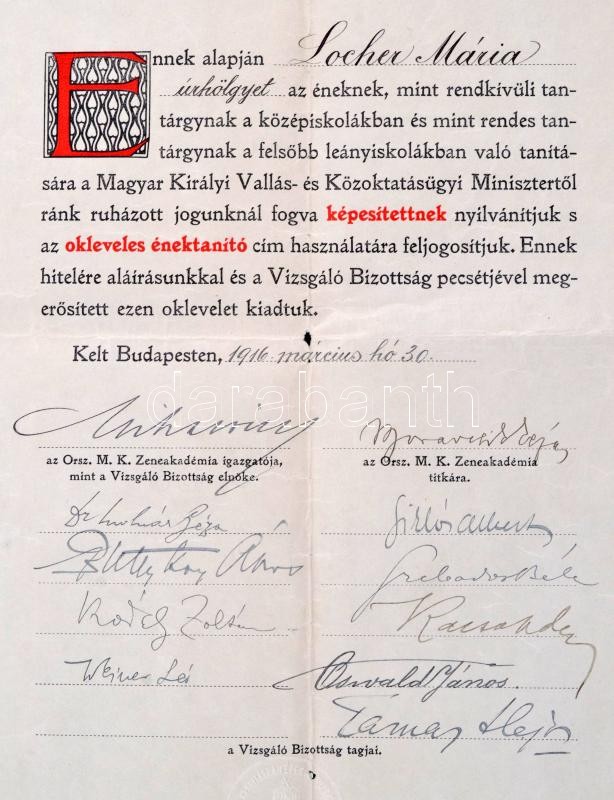 Ennek alapján Locher Mária
úrhölgyet az éneknek, mint rendkívüli tan-
tárgynak a középiskolákban és mint rendes tan-
tárgynak a felsőbb leányiskolákban való tanítá-
sára a Magyar Királyi Vallás- és Közoktatásügyi Minisztertől
ránk ruházott jogunknál fogva képesítettnek nyilvánítjuk s
az okleveles énektanító cím használatára feljogosítjuk. Ennek
hitelére aláírásunkkal és a Vizsgáló Bizottság pecsétjével meg-
erősített ezen oklevelet kiadtuk.
Kelt Budapesten, 1916. március hó 30.
darabanth
az Orsz. M. K. Zeneakadémia igazgatója,
mint a Vizsgáló Bizottság elnöke.
az Orsz. M. K. Zeneakadémia
titkára.
Dr Molnár Géza
Siklós Albert
Ákos
Szabados Béla
Kodály Zoltán
Weiner Leó
Oswald János.
a Vizsgáló Bizottság tagjai.